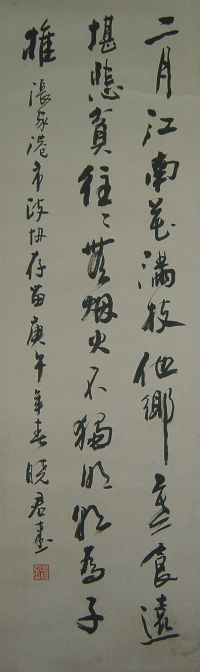 二月江南花滿枝他鄉寒食遠
堪悲貧往〻無烟火不獨明朝為子
推 張家港市政協存留庚午年春曉君書